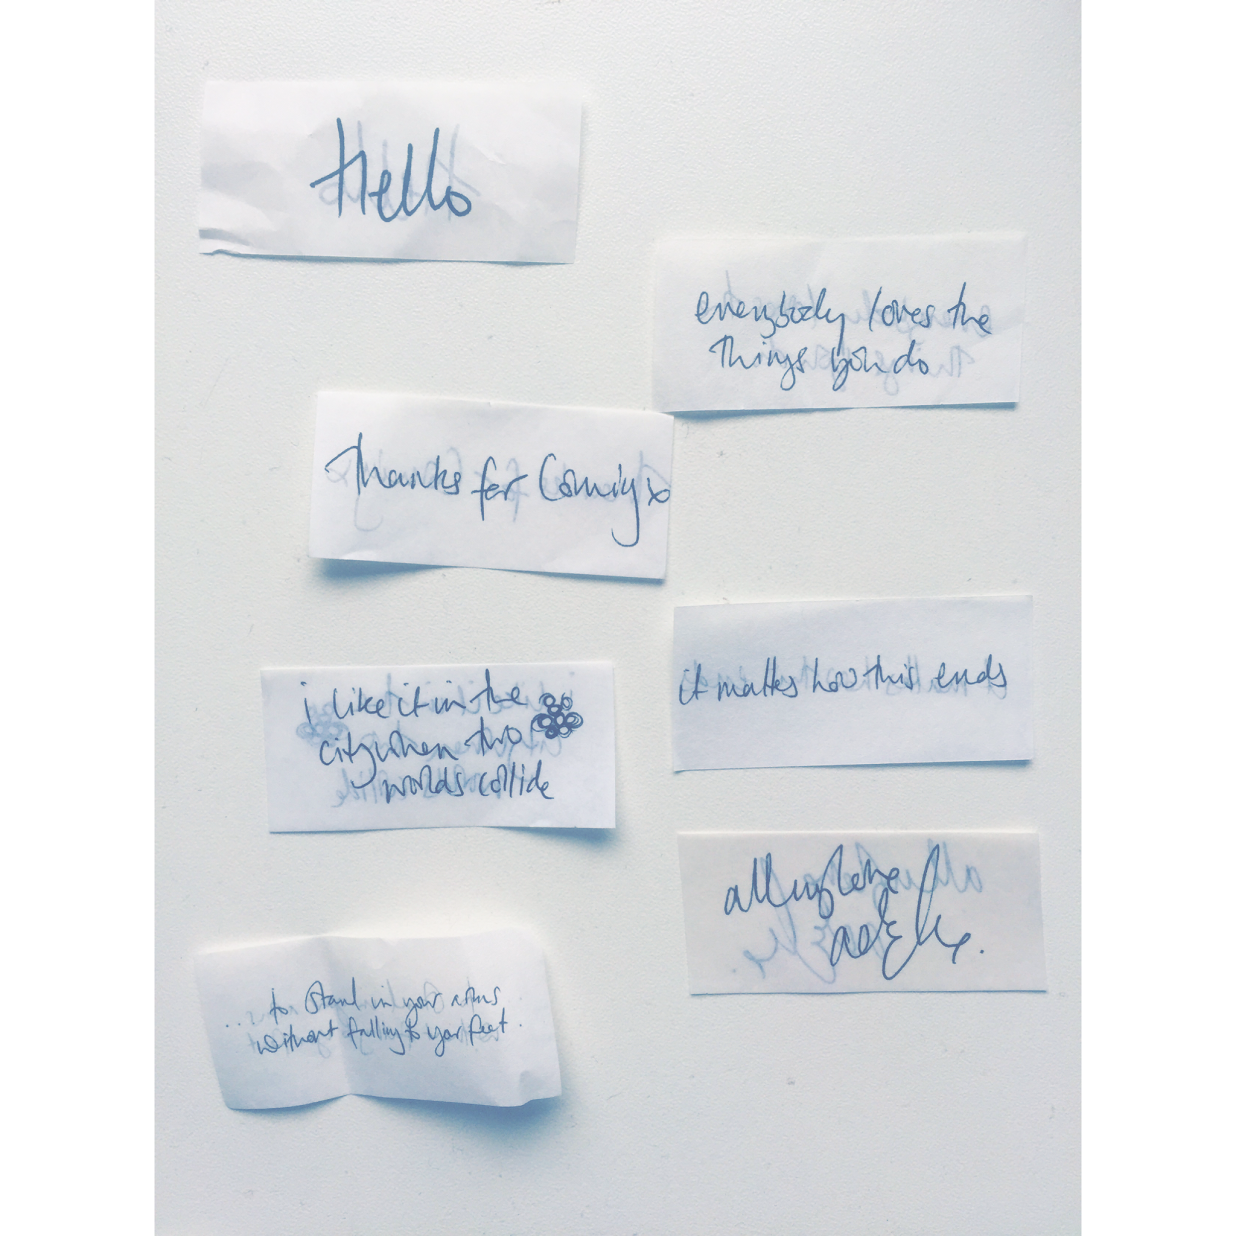 Hello
everybody loves the
things you do
Thanks for Coming x
i like it in the
city when two
worlds collide
it matters how this ends
all my love
adele x.
... to stand in your arms
without falling to your feet.